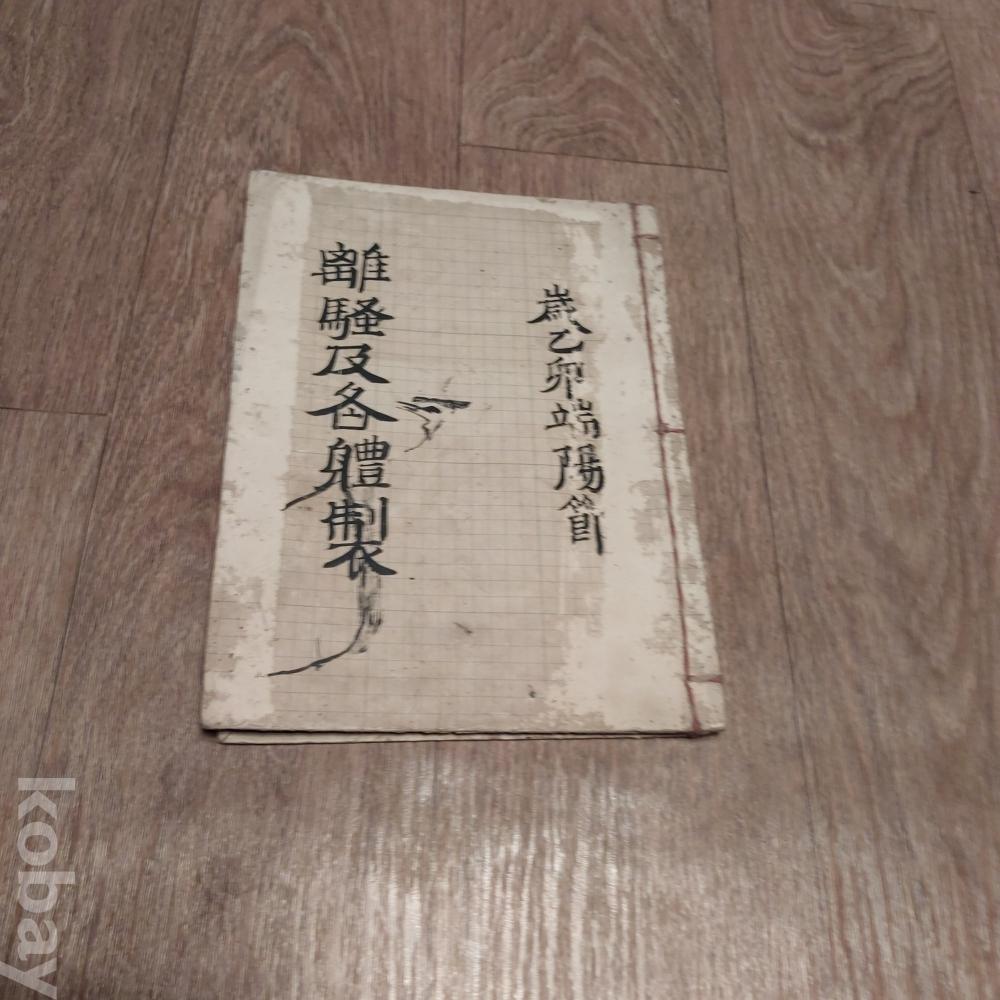 歲乙卯端陽節
離騷及各體製
kobay